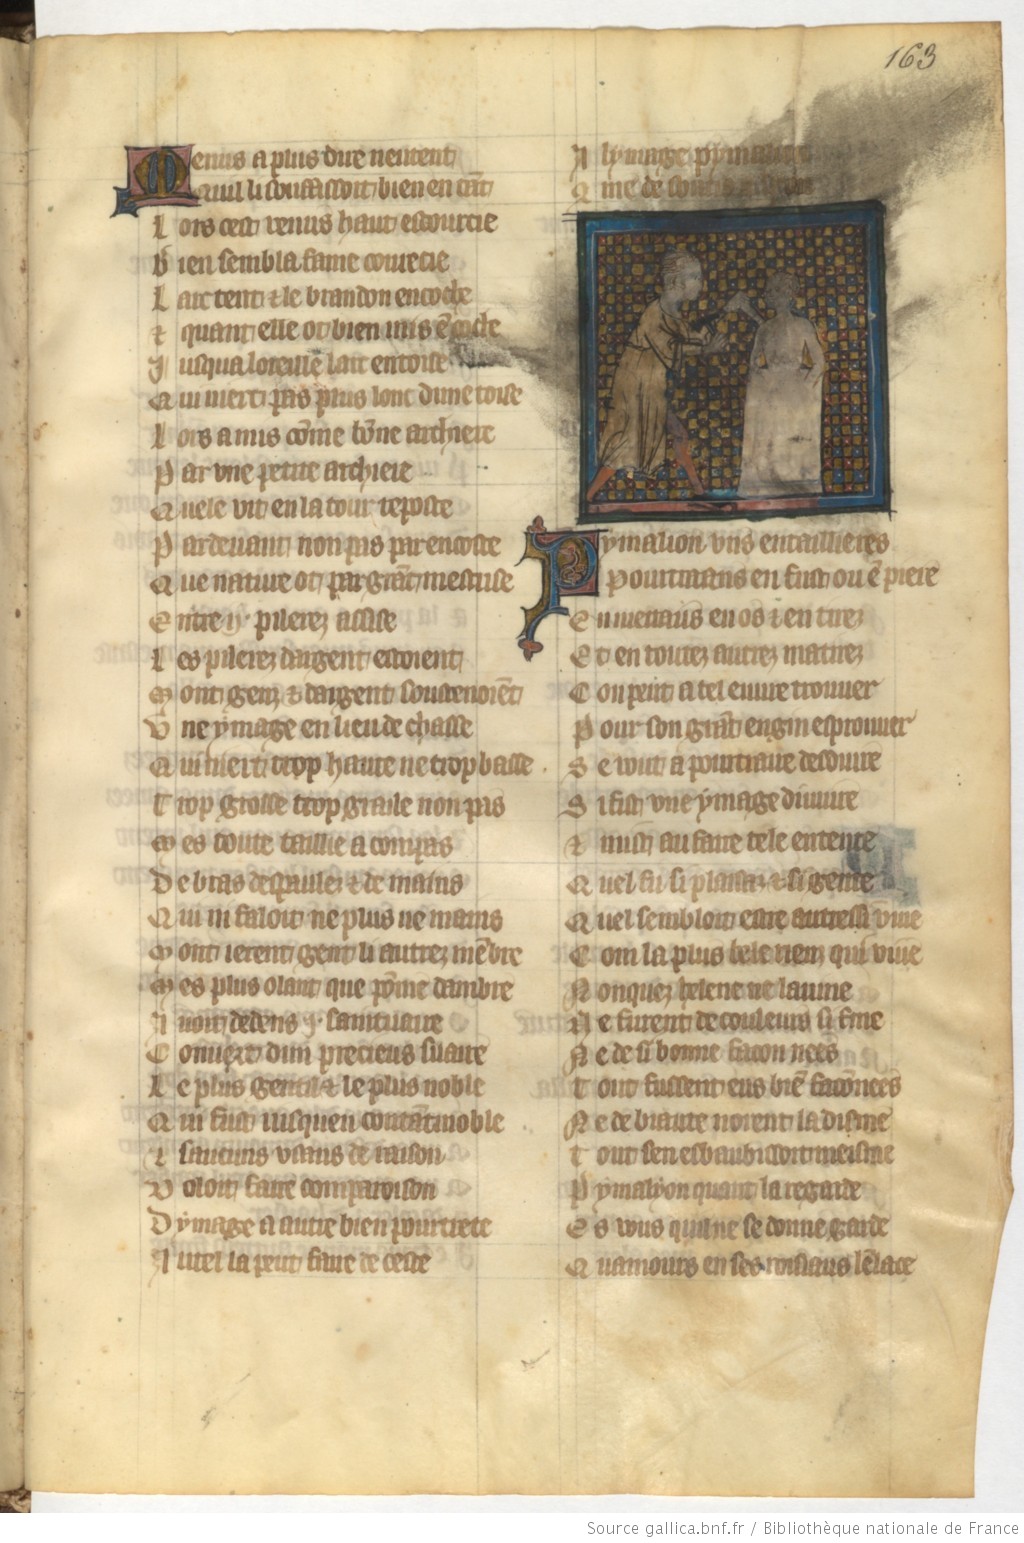 163
Venus a plus dire nentent
Quil li souffissoit bien en tant
Lors cest venus haut escourcie
Bien sembla fame courecie
Larc tent & le brandon encoche
& quant elle ot bien mis en coche
Jusqua loreille larc entoise
Qui niert pas plus lonc dune toise
Lors a mis comme bonne archiere
Par une petite archiere
Quele vit en la tour reposte
Par devant non pas par en coste
Que nature ot par grant mestrise
Entre .ij. pilerez assise
Les pilerez dargent estoient
Mont genz & dargent soustenoient
Une ymage en lieu de chasse
Qui niert trop haute ne trop basse
Trop grosse trop graile non pas
Mes toute taillie a compas
De bras despaulez & de mains
Qui ni faloit ne plus ne mains
Mont ierent gent li autrez membre
Mes plus olant que pomme dambre
Avoit dedens .j. saintuaire
Couvert dun precieus suaire
Le plus gentil & le plus noble
Qui fust jusquen coutantinoble
& saucuns usans de raison
Voloit faire comparoison
Dymage a autre bien pourtrete
Autel la peut faire de ceste
A lymage pymalion
Pymalion uns entaillieres
Pourtraians en fust ou en piere
En metaus en os & en cirez
Et en toutez autrez matirez
Con peut a tel euvre trouver
Pour son grant engin esprouver
Se vout a pourtraire deduire
Si fist une ymage divuire
& mist au faire tele entente
Quel fu si plaisaz & si gente
Quel sembloit estre autressi vive
Com la plus bele riens qui vive
Nonquez helene ne lavine
Ne furent de couleurs si fine
Ne de si bonne facon nees
Tout fussent eus bien faconnees
Ne de biaute norent la disme
Tout sen esbaubissoit meisme
Pymalyon quant la regarde
Es vous quil ne se donne garde
Quamours en ses roisiaus lenlace
Source gallica.bnf.fr / Bibliothèque nationale de France